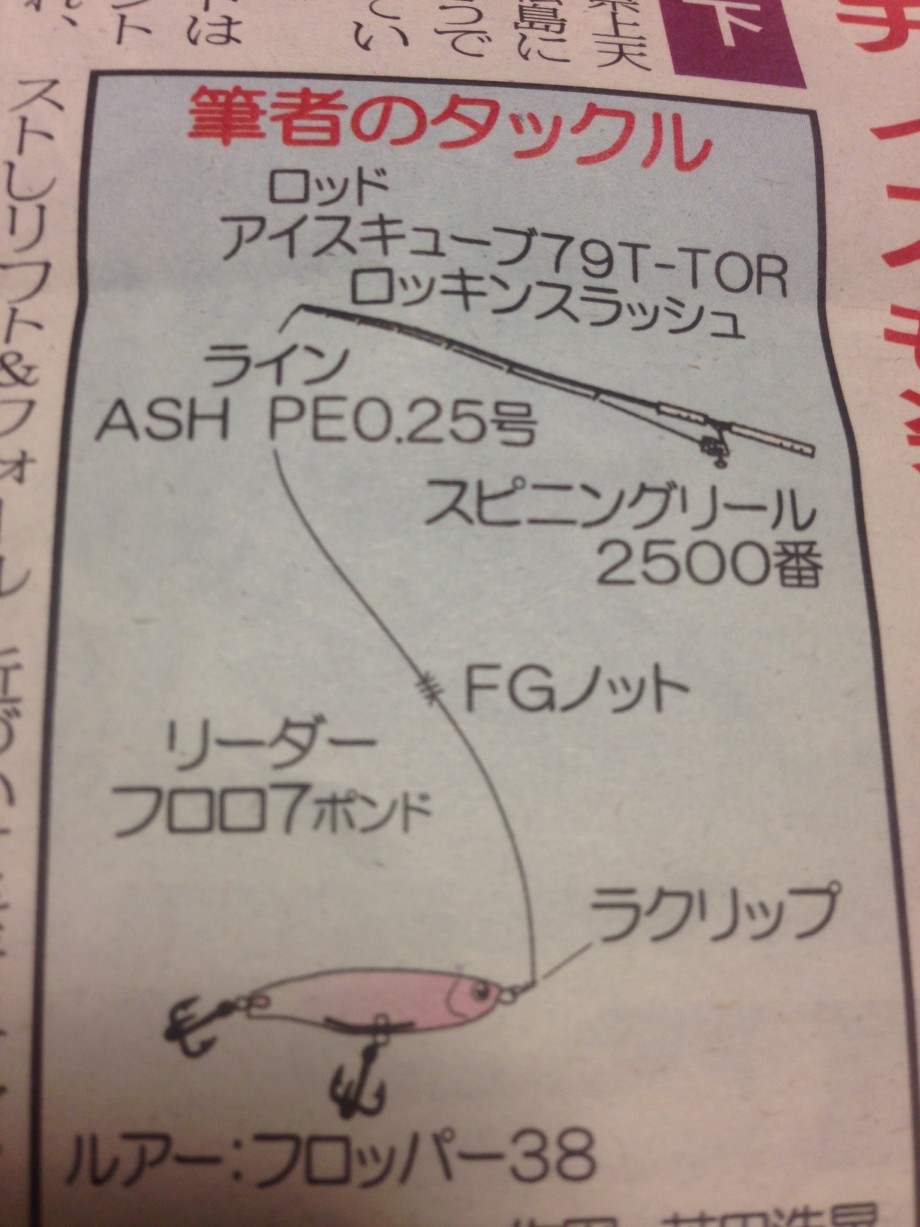 筆者のタックル
ロッド
アイスキューブ79T-TOR
ロッキンスラッシュ
ライン
ASH PE0.25号
スピニングリール
2500番
FGノット
リーダー
フロロ7ポンド
ラクリップ
ルアー:フロッパー38
ストしリフト&フォール
下